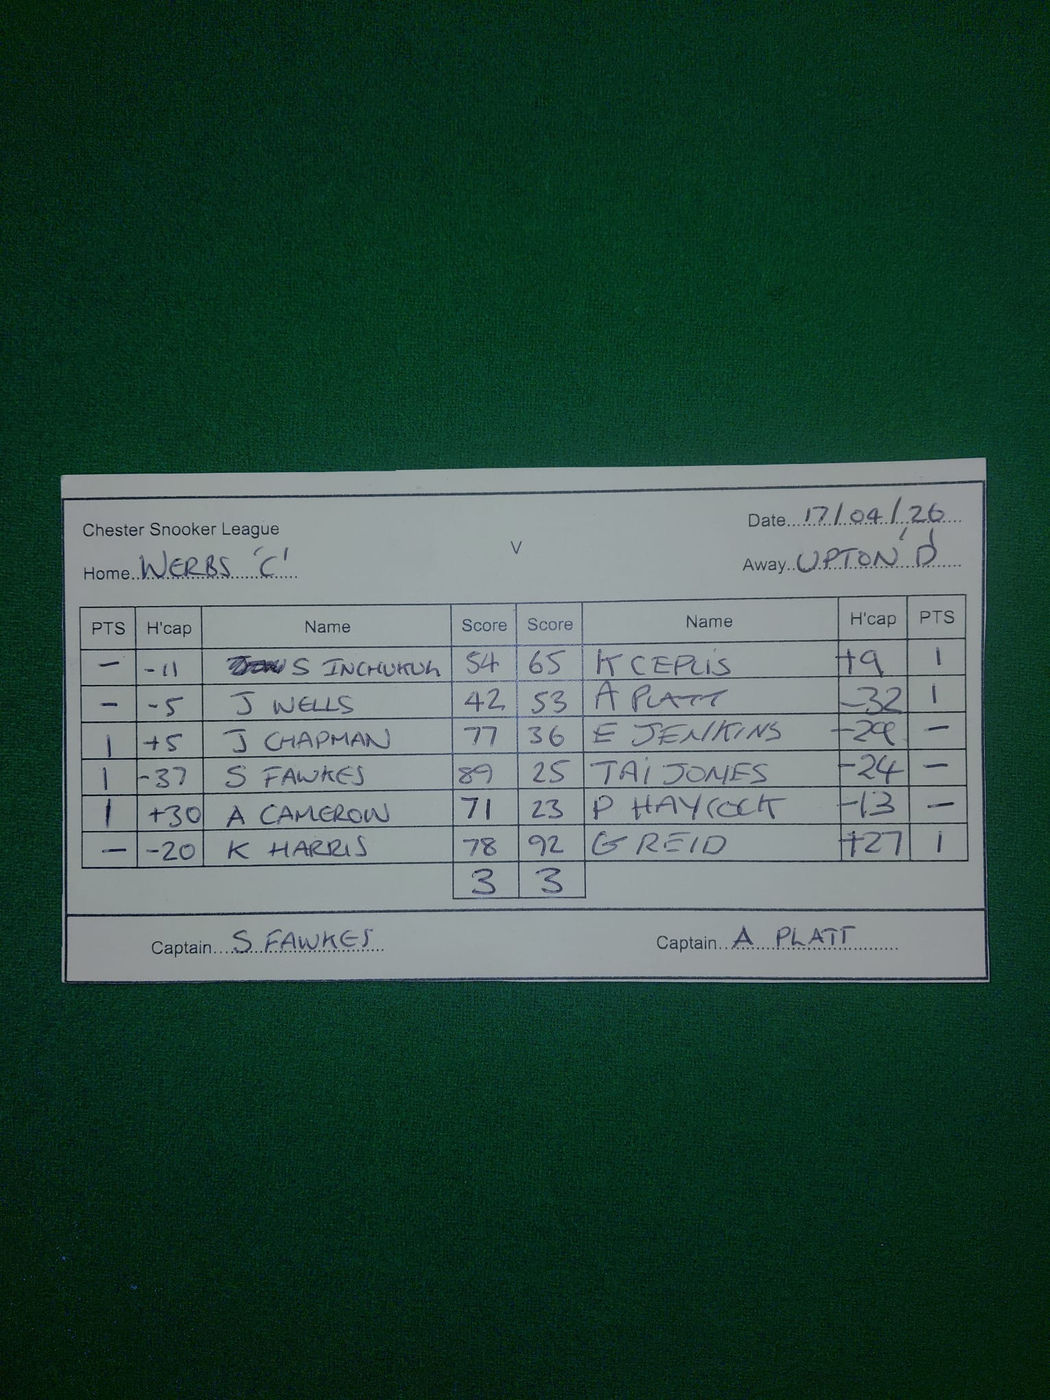 Chester Snooker League
Date...17/04/26...
V
Home..WERBS 'C'....
Away..UPTON 'D'....
PTS H'cap Name Score Score Name H'cap PTS
- -11 S 54 65 K CEPLIS +9 1
- -5 J WELLS 42 53 A PLATT -32 1
1 +5 J CHAPMAN 77 36 E JENKINS -29 -
1 -37 S FAWKES 89 25 TAI JONES -24 -
1 +30 A CAMERON 71 23 P HAYCOCK -13 -
- -20 K HARRIS 78 92 G REID +27 1
3 3
Captain....S FAWKES..
Captain..A PLATT........